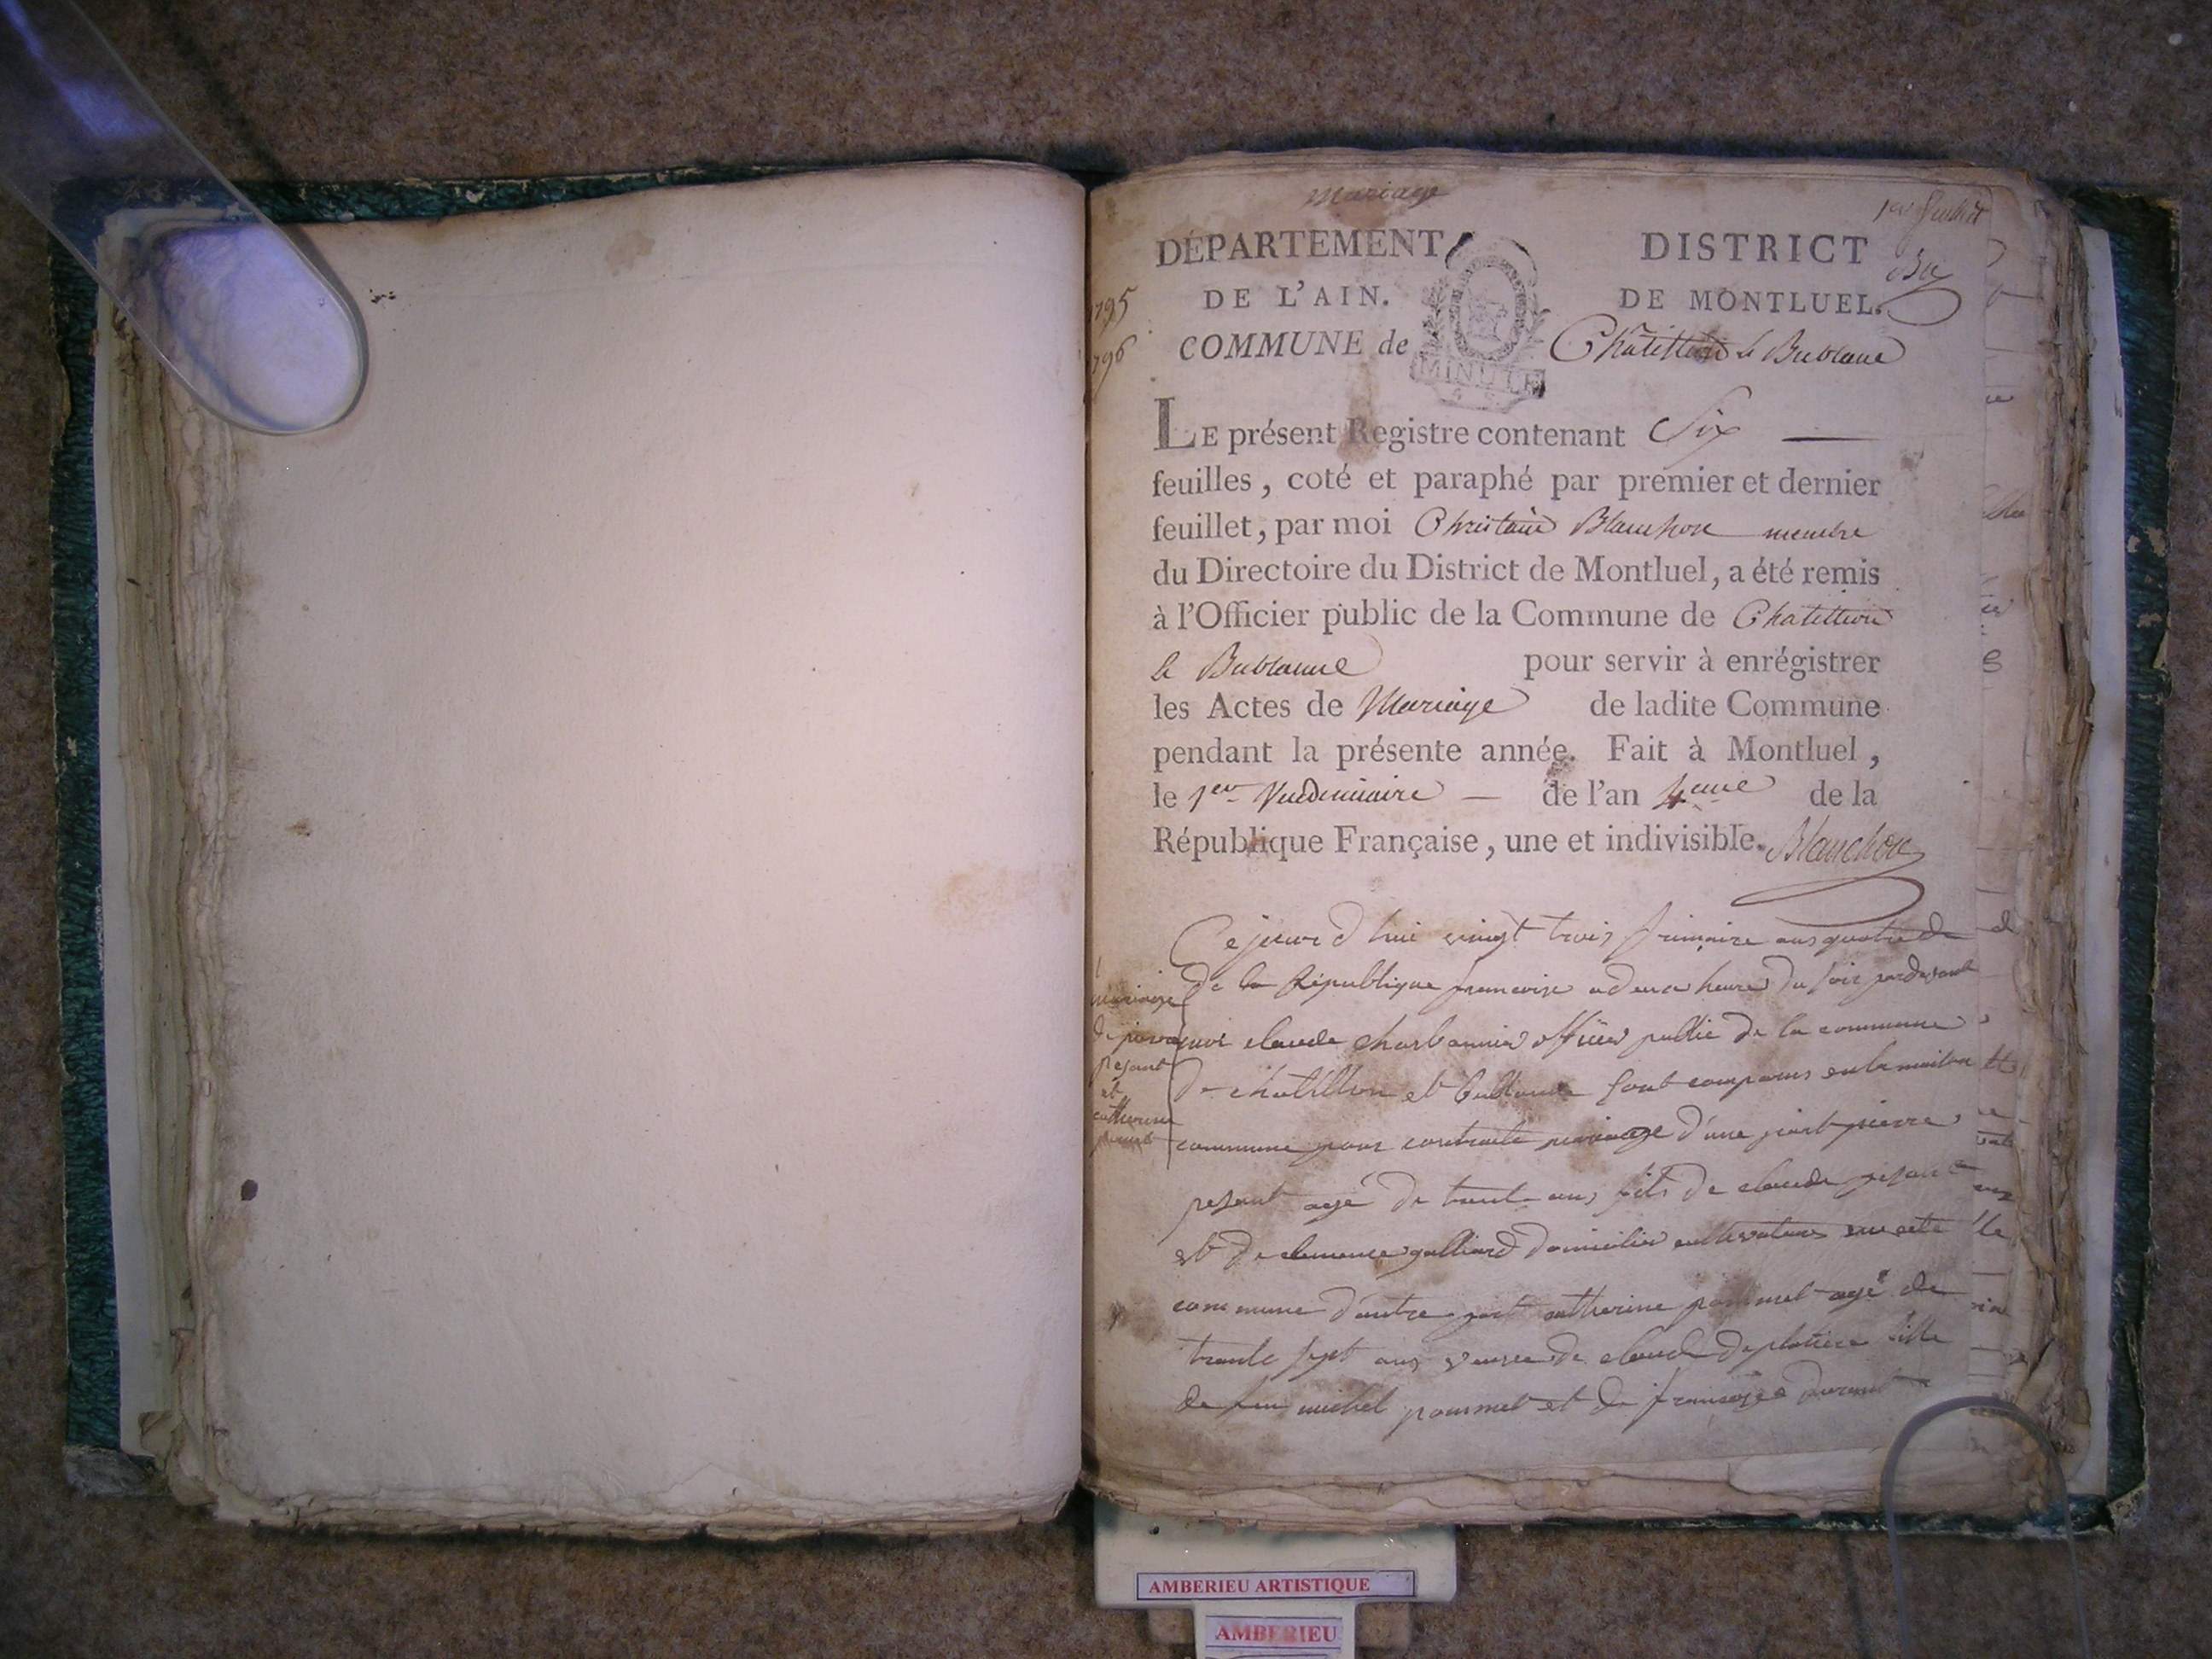 Mariage
1er feuillet
DÉPARTEMENT DISTRICT
1795 DE L'AIN. DE MONTLUEL.
1796 COMMUNE de Châtillon la
MINUTE
LE présent Registre contenant Six
feuilles, coté et paraphé par premier et dernier
feuillet, par moi Blanchon membre
du Directoire du District de Montluel, a été remis
à l'Officier public de la Commune de Chatillon
la pour servir à enrégistrer
les Actes de Mariage de ladite Commune
pendant la présente année. Fait à Montluel,
le 1er Vendemiaire de l'an 4eme de la
République Française, une et indivisible. Blanchon
Cejourd hui vingt trois frimaire ans quatre de
de la République francoise a deux heures du soir pardevant
moi claude charbonnier officier public de la commune
de chatillon sont comparus en la maison
commune pour contracte mariage d'une part pierre
pesant agé de trente ans fils de claude pesant
et de clemence galliard domicilié cultivateur en cete
commune d'autre part catherine pommet agé de
trente sept ans veuve de claude deplatiere fille
de feu michel pommet et de françoise durant
mariage
de pierre
pesant
et
catherine
pommet
AMBERIEU ARTISTIQUE
AMBERIEU